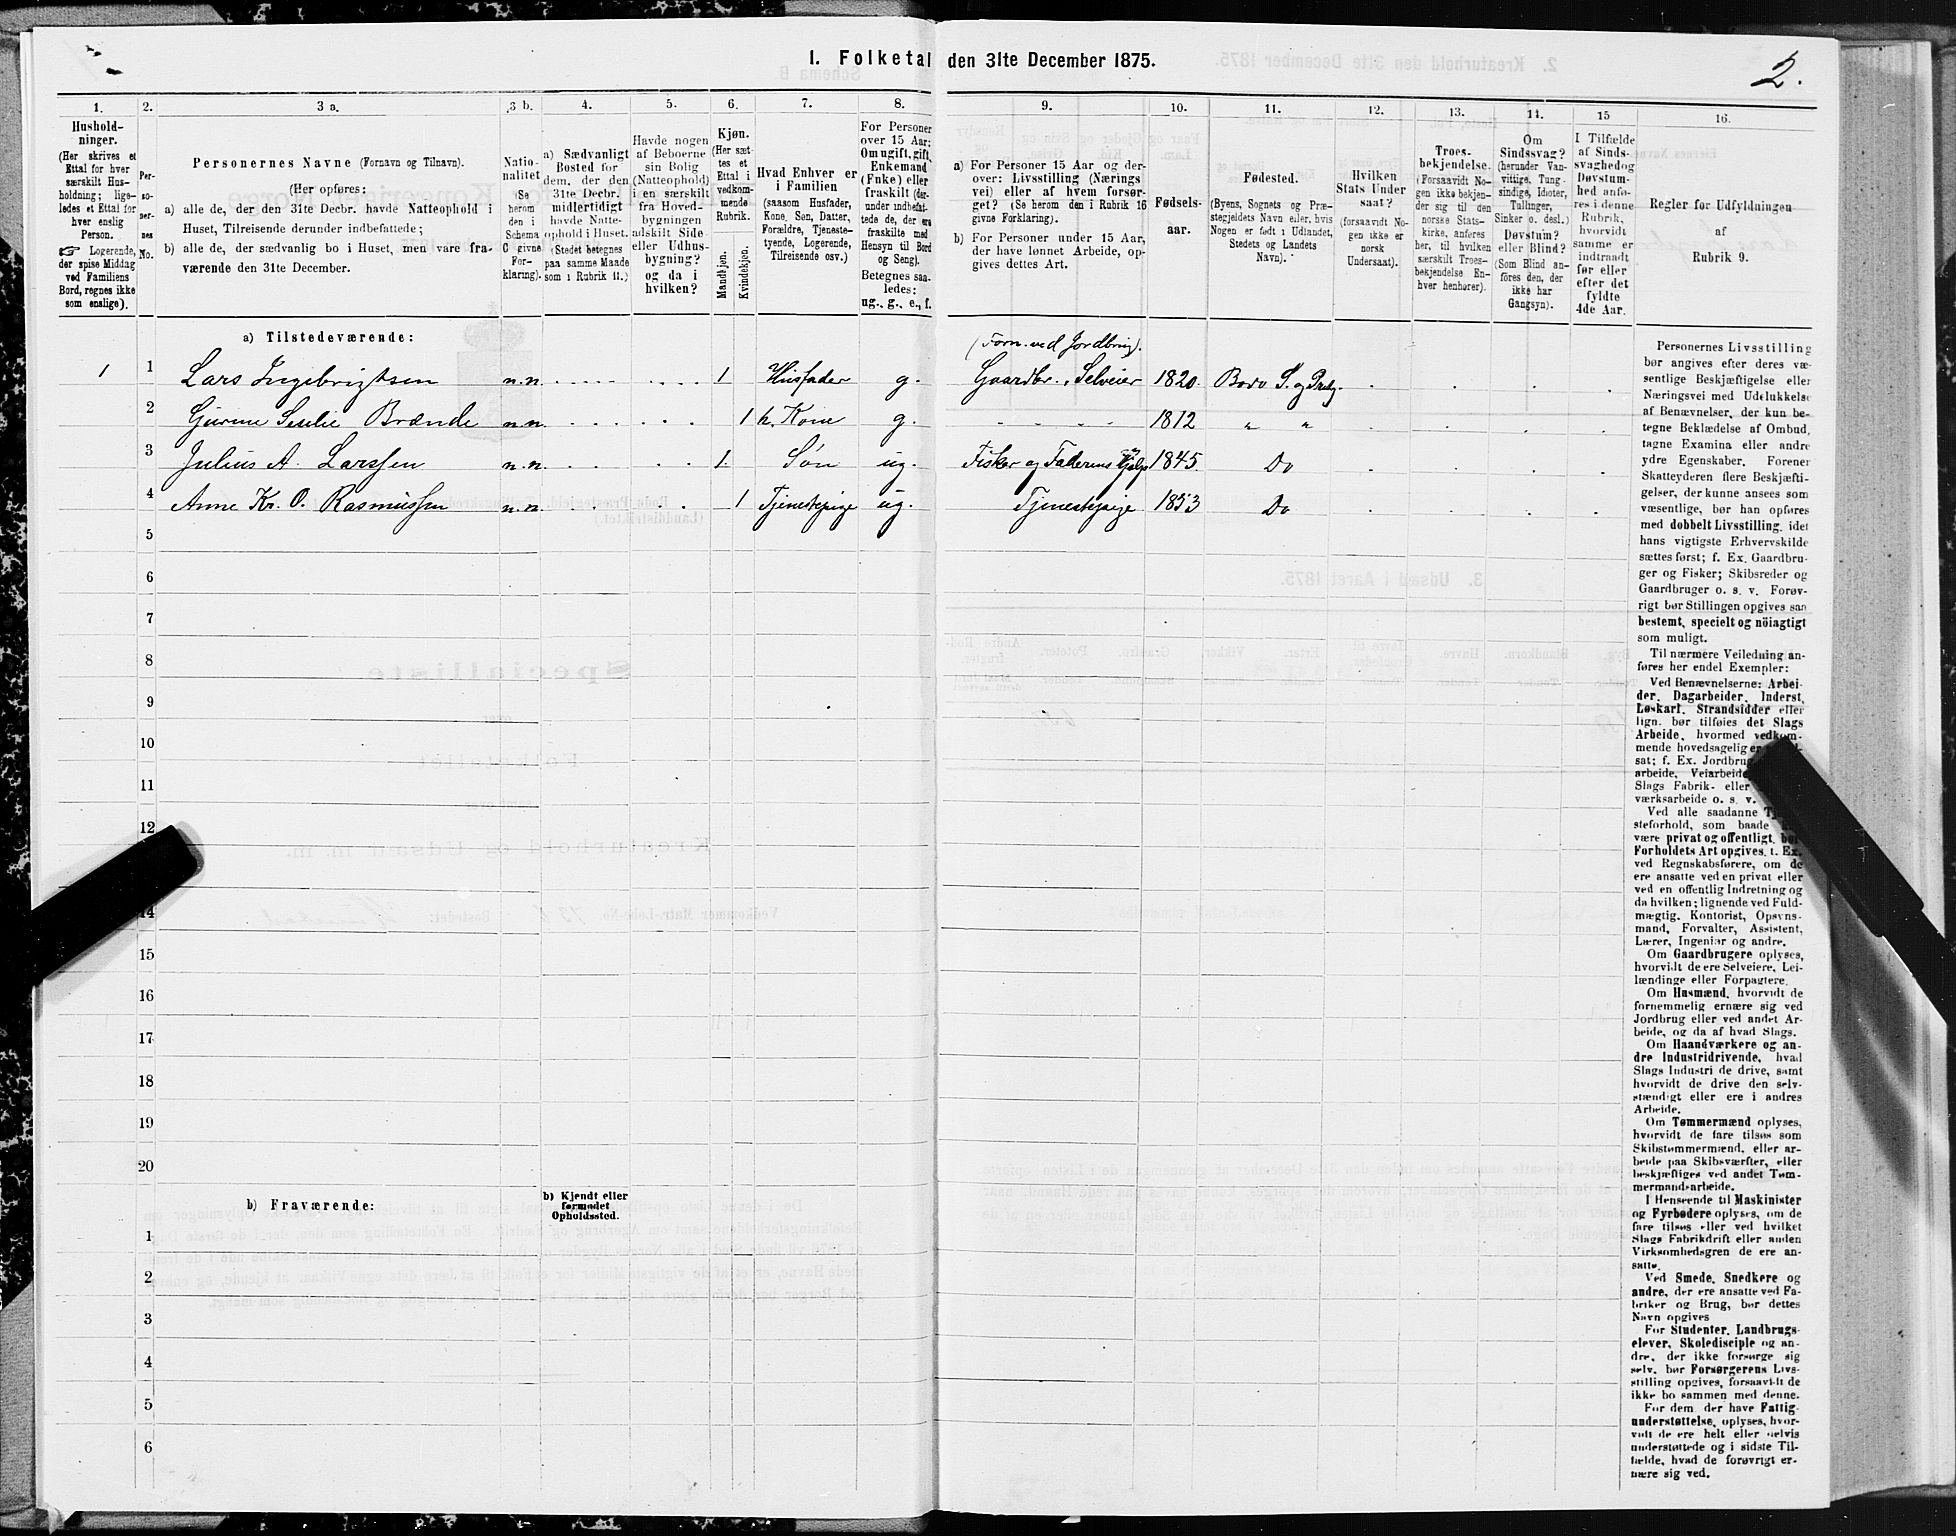 1. Folketal den 31te December 1875.
2.
1.
2.
3 a.
3 b.
4.
5.
6.
7.
8.
9.
10.
11.
12.
13.
14.
15
16.
Hushold-
ninger.
(Her skrives et
Ettal for hver
særskilt Hus-
holdning; lige-
ledes et Ettal for
hver enslig
Person.
☞ Logerende,
der spise Middag
ved Familiens
Bord, regnes ikke
som enslige).
Per-
so-
ner-
nes
No.
Personernes Navne (Fornavn og Tilnavn).
(Her opføres:
a) alle de, der den 31te Decbr. havde Natteophold i
Huset, Tilreisende derunder indbefattede;
b) alle de, der sædvanlig bo i Huset, men vare fra-
værende den 31te December.
Natio-
nalitet
(Se
herom
den i
Schema
C givne
For-
klaring).
a) Sædvanligt
Bosted for
dem, der den
31te Decbr.
midlertidigt
havde Natte-
ophold i Huset.
(Stedet betegnes
paa samme Maade
som i Rubrik 11.)
Havde nogen
af Beboerne
sin Bolig
(Natteophold)
i en særskilt
fra Hoved-
bygningen
adskilt Side-
eller Udhus-
bygning?
og da i
hvilken?
Kjøn.
(Her sæt-
tes et
Ettal i
vedkom-
mende
Rubrik.
Mandkjøn.
Kvindekjøn.
Hvad Enhver er
i Familien
(saasom Husfader,
Kone, Søn, Datter,
Forældre, Tjeneste-
tyende, Logerende,
Tilreisende osv.)
For Personer
over 15 Aar:
Om ugift, gift,
Enkemand
(Enke) eller
fraskilt (der-
under indbefat-
tede de, der ere
fraskilte med
Hensyn til Bord
og Seng).
Betegnes saa-
ledes:
ug., g., e., f.
a) For Personer 15 Aar og der-
over: Livsstilling (Nærings-
vei) eller af hvem forsør-
get? (Se herom den i Rubrik 16
givne Forklaring).
b) For Personer under 15 Aar,
der have lønnet Arbeide, op-
gives dettes Art.
Fødsels-
aar.
Fødested.
(Byens, Sognets og Præ-
stegjeldets Navn eller, hvis
Nogen er født i Udlandet,
Stedets og Landets
Navn).
Hvilken
Stats Under-
saat?
(forsaavidt No-
gen ikke er
norsk
Undersaat).
Troes-
bekjendelse.
(Forsaavidt No-
gen ikke bekjen-
der sig til den
norske Stats-
kirke, anføres
her, til hvilken
særskilt Troes-
bekjendelse En-
hver henhører).
Om
Sindssvag?
(herunder Van-
vittige, Tung-
sindige, Idioter,
Tullinger,
Sinker o. desl.)
Døvstum?
eller Blind?
(Som Blind an-
føres den, der
ikke har
Gangsyn).
I Tilfælde
af Sinds-
svaghed og
Døvstum-
hed anfø-
res i denne
Rubrik,
hvorvidt
samme er
indtraadt
før eller
efter det
fyldte
4de Aar.
Regler for Udfyldningen
af
Rubrik 9.
a) Tilstedeværende:
(Forn. ved Jordbrug).
1 1 Lars Ingebrigtsen n.n. 1 Husfader g. Gaardbr., Selveier 1820 Bodø S. og Prdg.
2 Gurine Brænde n.n. 1 h. Kone g. 1812 " "
3 Julius A. Larssen n.n. 1 Søn ug. Fisker og Faderens Hjelp 1845 Do
4 Anne Kr. O. Rasmussen n.n. 1 Tjenestepige ug. Tjenestepige 1853 Do
5
6
7
8
9
10
11
12
14
15
16
17
18
19
20
b) Fraværende:
b) Kjendt eller
formodet
Opholdssted.
1
2
3
4
5
6
Personernes Livsstilling
bør angives efter deres væ-
sentlige Beskjæftigelse eller
Næringsvei med Udelukkelse
af Benævnelser, der kun be-
tegne Beklædelse af Ombud,
tagne Examina eller andre
ydre Egenskaber. Forener
Skatteyderen flere Beskjæfti-
gelser, der kunne ansees som
væsentlige, bør han opføres
med dobbelt Livsstilling, idet
hans vigtigste Erhvervskilde
sættes først; f. Ex. Gaardbru-
ger og Fisker; Skibsreder og
Gaardbruger o. s. v. Forøv-
rigt bør Stillingen opgives saa
bestemt, specielt og nöiagtigt
som muligt.
Til nærmere Veiledning an-
føres her endel Exempler:
Ved Benævnelserne: Arbei-
der, Dagarbeider, Inderst,
Løskarl, Strandsidder eller
lign. bør tilføies det Slags
Arbeide, hvormed vedkom-
mende hovedsagelig er
sat; f. Ex. Jordbrug
arbeide, Veiarbeide
Slags Fabrik- eller
værksarbeide o. s. v.
Ved alle saadanne
steforhold, som baade
være privat og offentligt, bør
Forholdets Art opgives, f. Ex.
ved Regnskabsførere, om de
ere ansatte ved en privat eller
ved en offentlig Indretning og
da hvilken; lignende ved Fuld-
mægtig, Kontorist, Opsyns-
mand, Forvalter, Assistent,
Lærer, Ingeniør og andre.
Om Gaardbrugere oplyses,
hvorvidt de ere Selveiere, Lei-
lændinge eller Forpagtere.
Om Husmænd, hvorvidt de
fornemmelig ernære sig ved
Jordbrug eller ved andet Ar-
beide, og da af hvad Slags.
Om Haandværkere og an-
dre Industridrivende, hvad
Slags Industri de drive, samt
hvorvidt de drive den selv-
stændigt eller ere i andres
Arbeide.
Om Tømmermænd oplyses,
hvorvidt de fare tilsøs som
Skibstømmermænd, eller ar-
beide paa Skibsværfter, eller
beskjæftiges ved andet Tøm-
mermandsarbeide.
I Henseende til Maskinister
og Fyrbødere oplyses, om de
fare tilsøs eller ved hvilket
Slags Fabrikdrift eller anden
Virksomhedsgren de ere an-
satte.
Ved Smede, Snedkere og
andre, der ere ansatte ved Fa-
briker og Brug, bør dettes
Navn opgives
For Studenter, Landbrugs-
elever, Skoledisciple og an-
dre, der ikke forsørge sig
selv, bør Forsørgerens Livs-
stilling opgives, forsaavidt de
ikke bo sammen med denne.
For dem der have Fattig-
understøttelse, oplyses, hvor-
vidt de ere helt eller delvis
understøttede og i sidste Til-
fælde, hvad de forøvrigt er-
nære sig ved.